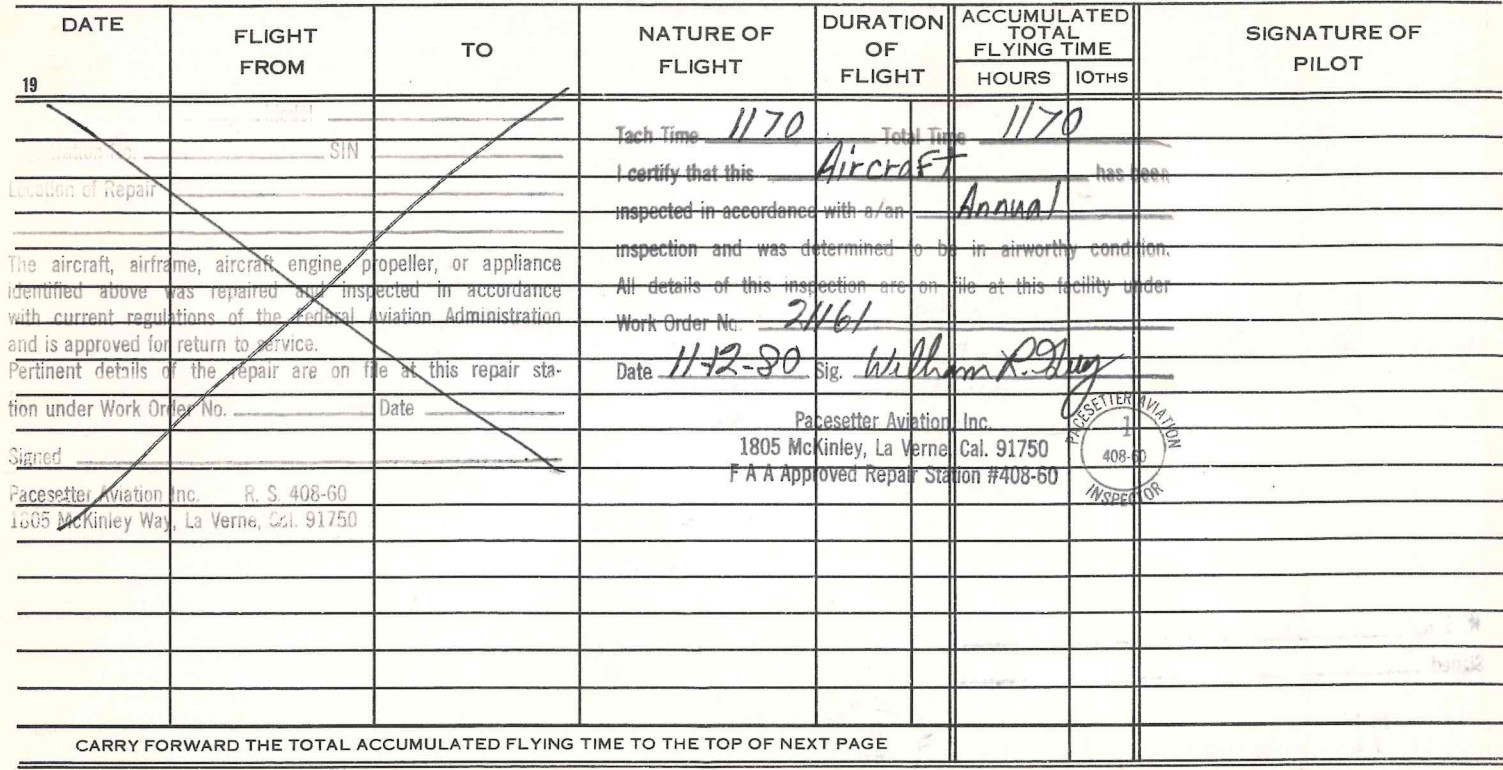 DATE
FLIGHT FROM
TO
NATURE OF FLIGHT
DURATION OF FLIGHT
ACCUMULATED TOTAL FLYING TIME
HOURS
10THS
SIGNATURE OF PILOT
19
Model
SIN
Location of Repair
The aircraft, airframe, aircraft engine, propeller, or appliance
identified above was repaired and inspected in accordance
with current regulations of the Federal Aviation Administration
and is approved for return to service.
Pertinent details of the repair are on file at this repair sta-
tion under Work Order No. Date
Signed
Pacesetter Aviation Inc. R. S. 408-60
1805 McKinley Way, La Verne, Cal. 91750
Tach Time 1170 Total Time 1170
I certify that this Aircraft has been
inspected in accordance with a/an Annual
inspection and was determined to be in airworthy condition.
All details of this inspection are on file at this facility under
Work Order No. 21161
Date 11-12-80 Sig. William R.
Pacesetter Aviation, Inc.
1805 McKinley, La Verne, Cal. 91750
F A A Approved Repair Station #408-60
PACESETTER AVIATION
1
408-60
INSPECTOR
Signed
CARRY FORWARD THE TOTAL ACCUMULATED FLYING TIME TO THE TOP OF NEXT PAGE